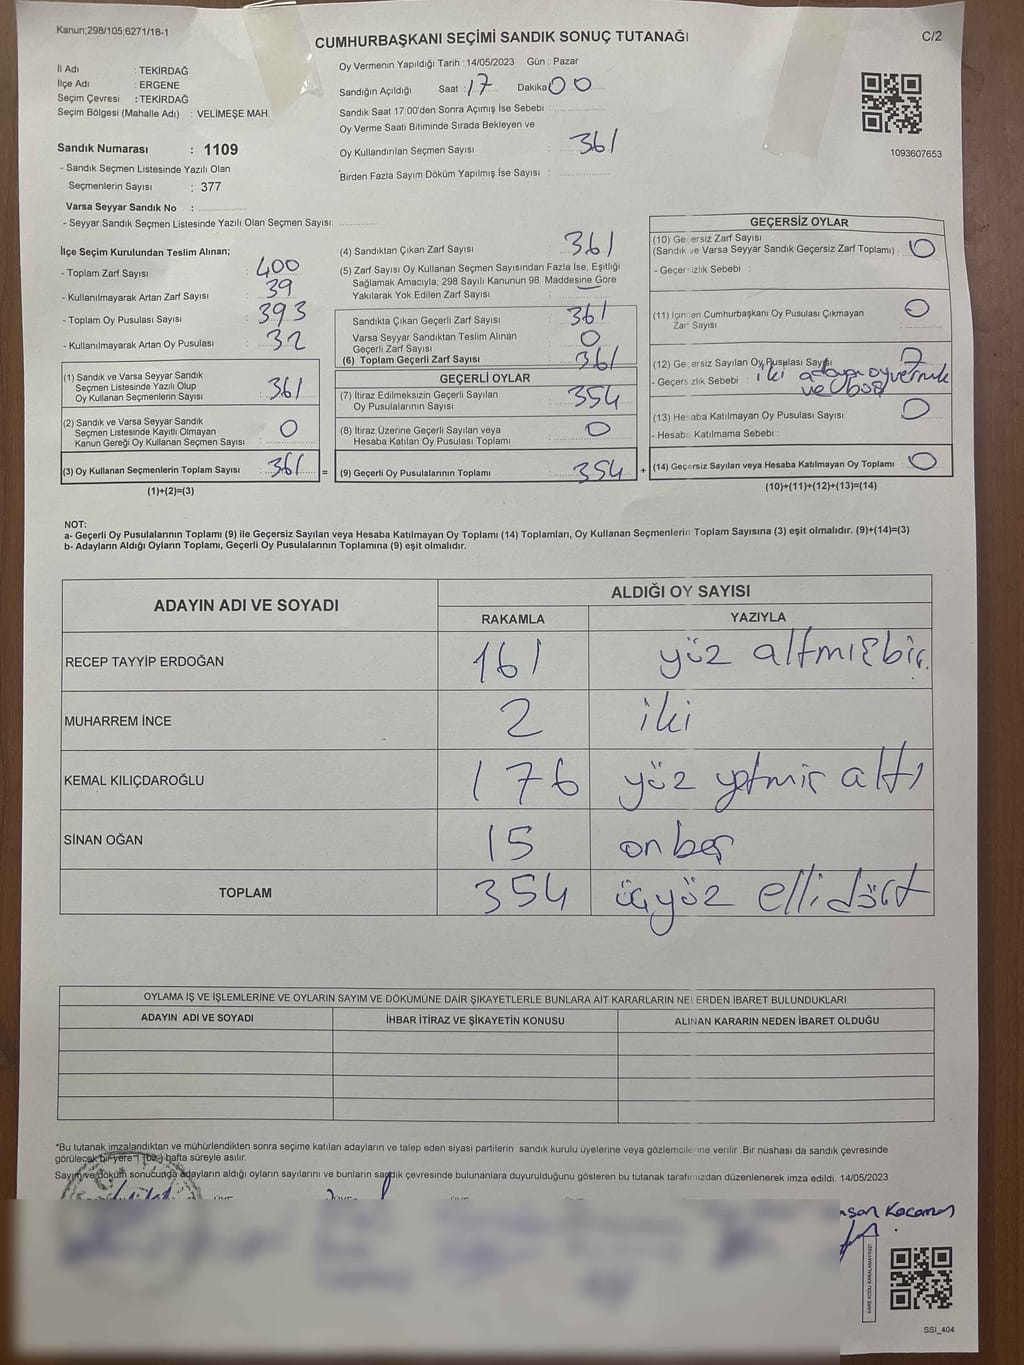 Kanun;298/105;6271/18-1
CUMHURBAŞKANI SEÇİMİ SANDIK SONUÇ TUTANAĞI
C/2
İl Adı : TEKİRDAĞ
İlçe Adı : ERGENE
Seçim Çevresi : TEKİRDAĞ
Seçim Bölgesi (Mahalle Adı) : VELİMEŞE MAH.
Sandık Numarası : 1109
- Sandık Seçmen Listesinde Yazılı Olan
Seçmenlerin Sayısı : 377
Varsa Seyyar Sandık No :
- Seyyar Sandık Seçmen Listesinde Yazılı Olan Seçmen Sayısı:
Oy Vermenin Yapıldığı Tarih : 14/05/2023 Gün : Pazar
Sandığın Açıldığı Saat : 17 Dakika 00
Sandık Saat 17:00'den Sonra Açımış İse Sebebi :
Oy Verme Saati Bitiminde Sırada Bekleyen ve
Oy Kullandırılan Seçmen Sayısı : 361
Birden Fazla Sayım Döküm Yapılmış İse Sayısı :
1093607653
İlçe Seçim Kurulundan Teslim Alınan;
- Toplam Zarf Sayısı : 400
- Kullanılmayarak Artan Zarf Sayısı : 39
- Toplam Oy Pusulası Sayısı : 393
- Kullanılmayarak Artan Oy Pusulası : 32
(1) Sandık ve Varsa Seyyar Sandık
Seçmen Listesinde Yazılı Olup
Oy Kullanan Seçmenlerin Sayısı : 361
(2) Sandık ve Varsa Seyyar Sandık
Seçmen Listesinde Kayıtlı Olmayan
Kanun Gereği Oy Kullanan Seçmen Sayısı : 0
(3) Oy Kullanan Seçmenlerin Toplam Sayısı : 361 =
(1)+(2)=(3)
(4) Sandıktan Çıkan Zarf Sayısı : 361
(5) Zarf Sayısı Oy Kullanan Seçmen Sayısından Fazla İse, Eşitliği
Sağlamak Amacıyla; 298 Sayılı Kanunun 98. Maddesine Göre
Yakılarak Yok Edilen Zarf Sayısı :
Sandıkta Çıkan Geçerli Zarf Sayısı : 361
Varsa Seyyar Sandıktan Teslim Alınan
Geçerli Zarf Sayısı : 0
(6) Toplam Geçerli Zarf Sayısı : 361
GEÇERLİ OYLAR
(7) İtiraz Edilmeksizin Geçerli Sayılan
Oy Pusulalarının Sayısı : 354
(8) İtiraz Üzerine Geçerli Sayılan veya
Hesaba Katılan Oy Pusulası Toplamı : 0
(9) Geçerli Oy Pusulalarının Toplamı : 354 +
GEÇERSİZ OYLAR
(10) Geçersiz Zarf Sayısı
(Sandık ve Varsa Seyyar Sandık Geçersiz Zarf Toplamı) : 0
- Geçersizlik Sebebi :
(11) İçinden Cumhurbaşkanı Oy Pusulası Çıkmayan
Zarf Sayısı : 0
(12) Geçersiz Sayılan Oy Pusulası Sayısı : 7
- Geçersizlik Sebebi : iki adaya oy vermek
ve boş
(13) Hesaba Katılmayan Oy Pusulası Sayısı : 0
- Hesaba Katılmama Sebebi :
(14) Geçersiz Sayılan veya Hesaba Katılmayan Oy Toplamı : 0
(10)+(11)+(12)+(13)=(14)
NOT:
a- Geçerli Oy Pusulalarının Toplamı (9) ile Geçersiz Sayılan veya Hesaba Katılmayan Oy Toplamı (14) Toplamları, Oy Kullanan Seçmenlerin Toplam Sayısına (3) eşit olmalıdır. (9)+(14)=(3)
b- Adayların Aldığı Oyların Toplamı, Geçerli Oy Pusulalarının Toplamına (9) eşit olmalıdır.
ADAYIN ADI VE SOYADI
ALDIĞI OY SAYISI
RAKAMLA YAZIYLA
RECEP TAYYİP ERDOĞAN 161 yüz altmışbir
MUHARREM İNCE 2 iki
KEMAL KILIÇDAROĞLU 176 yüz yetmiş altı
SİNAN OĞAN 15 onbeş
TOPLAM 354 üçyüz ellidört
OYLAMA İŞ VE İŞLEMLERİNE VE OYLARIN SAYIM VE DÖKÜMÜNE DAİR ŞİKAYETLERLE BUNLARA AİT KARARLARIN NELERDEN İBARET BULUNDUKLARI
ADAYIN ADI VE SOYADI İHBAR İTİRAZ VE ŞİKAYETİN KONUSU ALINAN KARARIN NEDEN İBARET OLDUĞU
*Bu tutanak imzalandıktan ve mühürlendikten sonra seçime katılan adayların ve talep eden siyasi partilerin sandık kurulu üyelerine veya gözlemcilerine verilir. Bir nüshası da sandık çevresinde
görülecek bir yere 1 (bir) hafta süreyle asılır.
Sayım ve döküm sonucunda adayların aldığı oyların sayılarını ve bunların sandık çevresinde bulunanlara duyurulduğunu gösteren bu tutanak tarafımızdan düzenlenerek imza edildi. 14/05/2023
KARE KODU KARALAMAYINIZ!
SSI_404